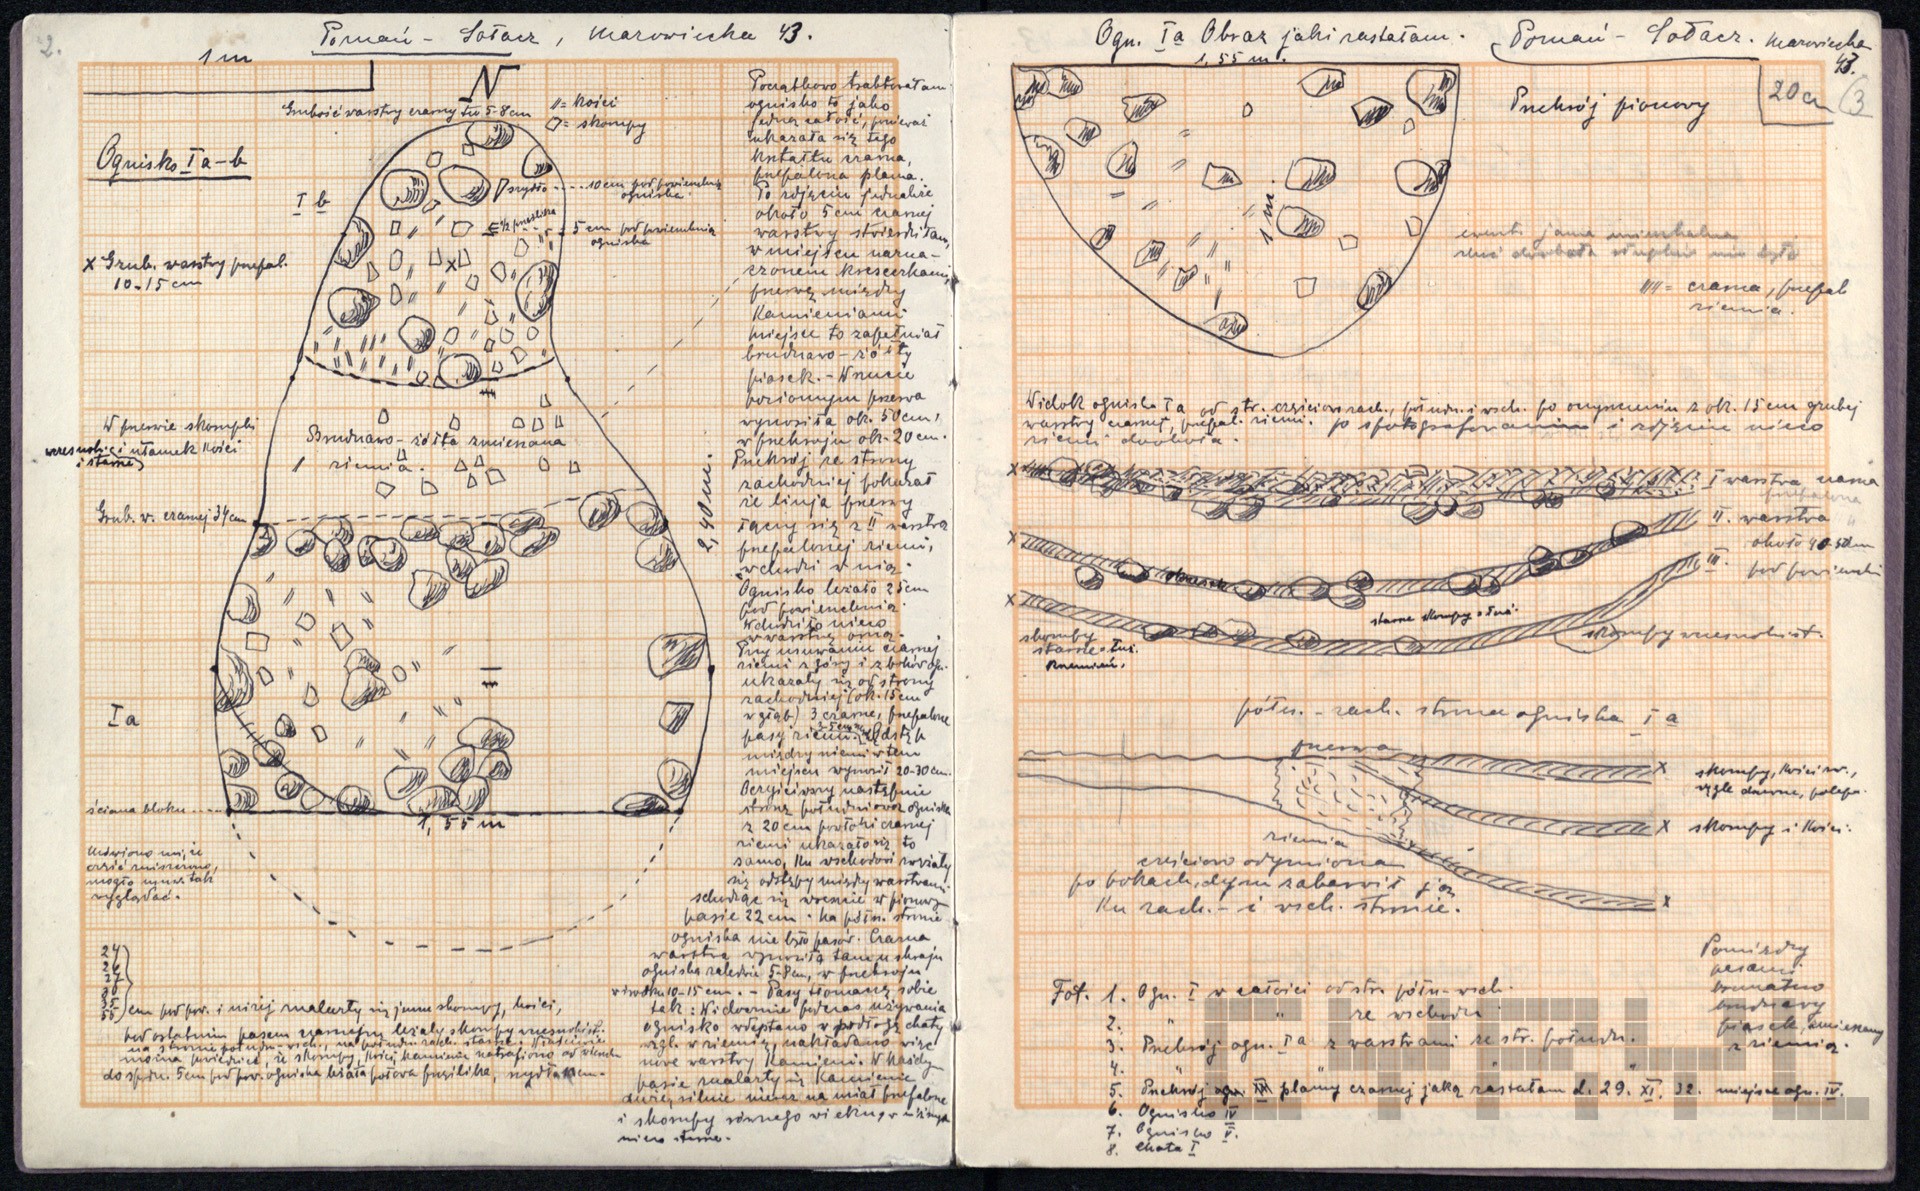 2.
Poznań - Sołacz, Mazowiecka 43.
1 m
N
Grubość warstwy czarnej tu 5-8 cm
〃= kości
= skorupy
Ognisko Ia-b
I b
szydło .... 10 cm pod powierzchnią
ogniska
½ prześlika
5 cm pod powierzchnią
ogniska
x Grub. warstwy przepal.
10-15 cm
W przerwie skorupki
wczesnohi. i ułamek kości
i starsze
Brudnawo-żółta zmieszana
ziemia.
Grub. w. czarnej 34 cm
2,40 m.
I a
ściana bloku
1,55 m
Mówiono mi, że
część zniszczona,
mogło mniej. tak
wyglądać.
24
26
27
30
35
55
cm pod pow. i niżej znalazły się jeszcze skorupy, kości,
pod ostatnim pasem czarnym leżały skorupy wczesnohist.
można powiedzieć, że skorupy, kości, kamienie natrafiono od wierzchu
do spodu. 5 cm pod pow. ogniska leżała połowa przęślika, szydło 10 cm.
Początkowo traktowałam
ognisko to jako
jedną całość, ponieważ
ukazała się tego
kształtu czarna,
przepalona plama.
Po zdjęciu jednakże
około 5 cm czarnej
warstwy stwierdziłam,
w miejscu nazna-
czonem kreseczkami,
przerwę między
kamieniami
miejsce to zapełniał
brudnawo-żółty
piasek. - W rzucie
poziomym przerwa
wynosiła ok. 50 cm,
w przekroju ok. 20 cm.
Przekrój ze strony
zachodniej pokazał
że linja przerwy
łączy się z II warstwą
przepalonej ziemi,
wchodzi w nią.
Ognisko leżało 25 cm
pod powierzchnią.
Wchodziło nieco
w warstwę orną.
Przy usuwaniu czarnej
ziemi z góry i z boków ogn.
ukazały się od strony
zachodniej (ok. 15 cm
w głąb) 3 czarne, przepalone
pasy ziemi. Odstęp
między niemi w tem
miejscu wynosił 20-30 cm.
Oczyściwszy następnie
stronę południową ogniska
z 20 cm powłoki czarnej
ziemi ukazało się to
samo, ku wschodowi zwężały
się odstępy między warstwami
schodząc się wreszcie w pionowy
pasie 22 cm. Na półn. stronie
ogniska nie było pasów. Czarna
warstwa wynosiła tam u skraju
ogniska zaledwie 5-8 cm, w przekroju
w środku 10-15 cm. - Pasy tłomaczę sobie
tak: Widocznie podczas używania
ognisko wdeptano w podłogę chaty
wzgl. w ziemię, nakładano więc
nowe warstwy kamieni. W każdym
pasie znalazły się kamienie
dużej, silnie nieraz na miał przepalone
i skorupy równego wieku, w niższym
nieco starsze.
Ogn. Ia Obraz jaki zastałam.
1,55 m.
Poznań - Sołacz. Mazowiecka
43.
Przekrój pionowy
20 cm
3
1 m.
ewent. jama mieszkalna
〃〃= czarna, przepal
ziemia.
Widok ogniska Ia od str. częściowo zach., połudn. i wsch. po oczyszczeniu z ok. 15 cm grubej
warstwy czarnej, przepal. ziemi. Po sfotografowaniu i zdjęciu nieco
ziemi dookoła.
x
I warstwa czarna
przepalona
x
II. warstwa
około 40-50 cm
pod powierzchnią
obrazek
x
III.
starsze skorupy
skorupy
starsze
skorupy wczesnohist.
półn. - zach. strona ogniska I a
przerwa
x
skorupy, kości zw.,
węgle drzewne, polepa.
x
skorupy i kości.
ziemia
częściowo odymiona
po bokach, dym zabarwił ją
ku zach. - i wsch. stronie.
x
Pomiędzy
pasami
brunatno
brudnawy
piasek, zmieszany
z ziemią.
Fot. 1. Ogn. I w całości od str. półn-wsch.
2. 〃 〃 ze wschodu
3. Przekrój ogn. Ia z warstwami ze str. połudn.
4. 〃
5. Przekrój plamy czarnej jaką zastałam d. 29. XI. 32. miejsce ogn. IV.
6. Ognisko IV
7. Ognisko V.
8. Chata I